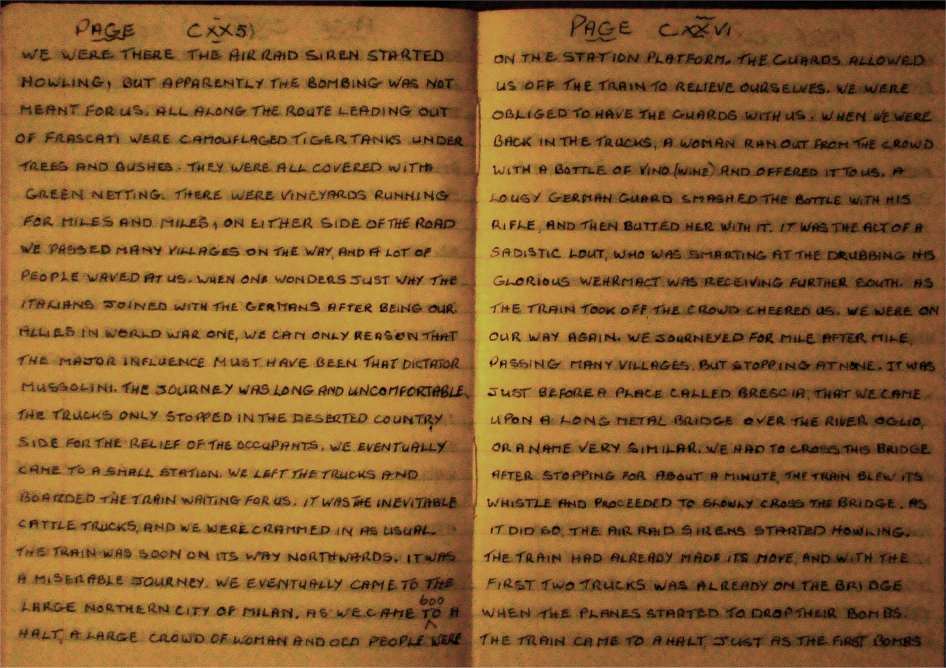 PAGE CXX5)
WE WERE THERE THE AIR RAID SIREN STARTED
HOWLING, BUT APPARENTLY THE BOMBING WAS NOT
MEANT FOR US. ALL ALONG THE ROUTE LEADING OUT
OF FRASCATI WERE CAMOUFLAGED TIGER TANKS UNDER
TREES AND BUSHES. THEY WERE ALL COVERED WITH
GREEN NETTING. THERE WERE VINEYARDS RUNNING
FOR MILES AND MILES, ON EITHER SIDE OF THE ROAD
WE PASSED MANY VILLAGES ON THE WAY, AND A LOT OF
PEOPLE WAVED AT US. WHEN ONE WONDERS JUST WHY THE
ITALIANS JOINED WITH THE GERMANS AFTER BEING OUR
ALLIES IN WORLD WAR ONE, WE CAN ONLY REASON THAT
THE MAJOR INFLUENCE MUST HAVE BEEN THAT DICTATOR
MUSSOLINI. THE JOURNEY WAS LONG AND UNCOMFORTABLE.
THE TRUCKS ONLY STOPPED IN THE DESERTED COUNTRY
SIDE FOR THE RELIEF OF THE OCCUPANTS. WE EVENTUALLY
CAME TO A SMALL STATION. WE LEFT THE TRUCKS AND
BOARDED THE TRAIN WAITING FOR US. IT WAS THE INEVITABLE
CATTLE TRUCKS, AND WE WERE CRAMMED IN AS USUAL.
THE TRAIN WAS SOON ON ITS WAY NORTHWARDS. IT WAS
A MISERABLE JOURNEY. WE EVENTUALLY CAME TO THE
LARGE NORTHERN CITY OF MILAN. AS WE CAME TO A
HALT, A LARGE CROWD OF WOMAN AND OLD PEOPLE WERE
PAGE CXXVI
ON THE STATION PLATFORM. THE GUARDS ALLOWED
US OFF THE TRAIN TO RELIEVE OURSELVES. WE WERE
OBLIGED TO HAVE THE GUARDS WITH US. WHEN WE WERE
BACK IN THE TRUCKS, A WOMAN RAN OUT FROM THE CROWD
WITH A BOTTLE OF VINO (WINE) AND OFFERED IT TO US. A
LOUSY GERMAN GUARD SMASHED THE BOTTLE WITH HIS
RIFLE, AND THEN BUTTED HER WITH IT. IT WAS THE ACT OF A
SADISTIC LOUT, WHO WAS SMARTING AT THE DRUBBING HIS
GLORIOUS WEHRMACT WAS RECEIVING FURTHER SOUTH. AS
THE TRAIN TOOK OFF THE CROWD CHEERED US. WE WERE ON
OUR WAY AGAIN. WE JOURNEYED FOR MILE AFTER MILE,
PASSING MANY VILLAGES, BUT STOPPING AT NONE. IT WAS
JUST BEFORE A PLACE CALLED BRESCIA, THAT WE CAME
UPON A LONG METAL BRIDGE OVER THE RIVER OGLIO,
OR A NAME VERY SIMILAR. WE HAD TO CROSS THIS BRIDGE
AFTER STOPPING FOR ABOUT A MINUTE, THE TRAIN BLEW ITS
WHISTLE AND PROCEEDED TO SLOWLY CROSS THE BRIDGE. AS
IT DID SO, THE AIR RAID SIRENS STARTED HOWLING.
THE TRAIN HAD ALREADY MADE ITS MOVE, AND WITH THE
FIRST TWO TRUCKS WAS ALREADY ON THE BRIDGE
WHEN THE PLANES STARTED TO DROP THEIR BOMBS.
THE TRAIN CAME TO A HALT, JUST AS THE FIRST BOMBS